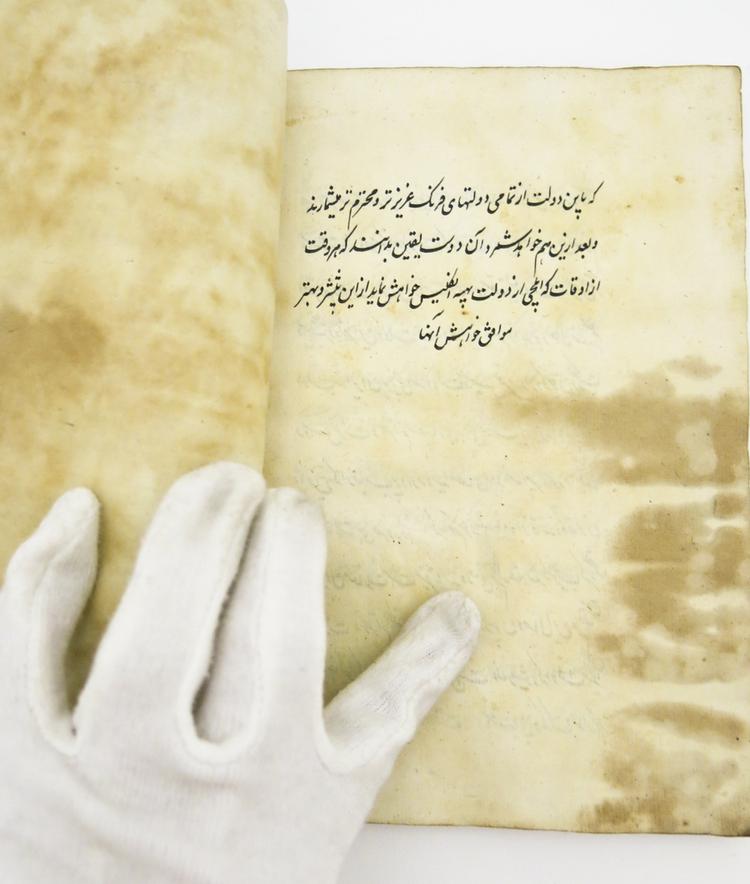 که باین دولت از تمامی دولتهای فرنک عزیز تر و محترم تر میشمارند
و بعد ازین هم خواهد شمرد آن دوست یقین بدانند که هر وقت
از اوقات که ایلچی از دولت بهیه انکلیس خواهش نماید ازین بیشتر و بهتر
موافق خواهش آنها